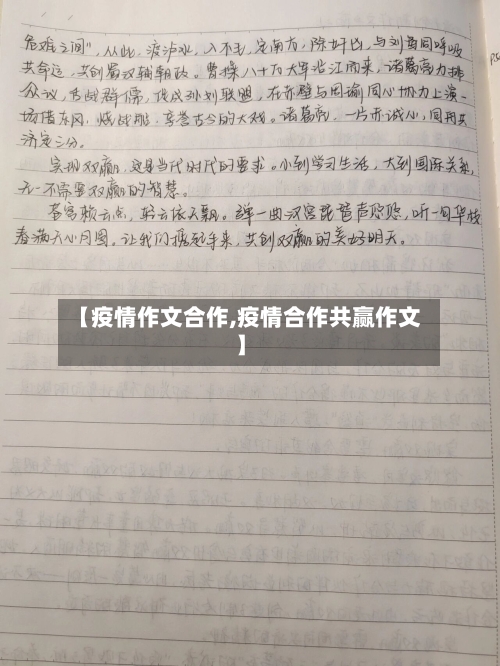 危难之间",从此,渡泸水,入不毛,定南方,除奸凶,与刘蜀同呼吸
共命运,共创蜀汉朝政。曹操八十万大军沿江而来,诸葛亮力排
众议,舌战群儒,促成孙刘联盟,在赤壁与周瑜同心协力上演一
场借东风,烧战船,享誉古今的大戏。诸葛亮,一片赤诚心,同周共
济定三分。
实现双赢,这是当代时代的要求。小到学习生活,大到国际关系,
无一不需要双赢的智慧。
春满天心月圆,让我们携起手来,共创双赢的美好明天。
【疫情作文合作,疫情合作共赢作文
】